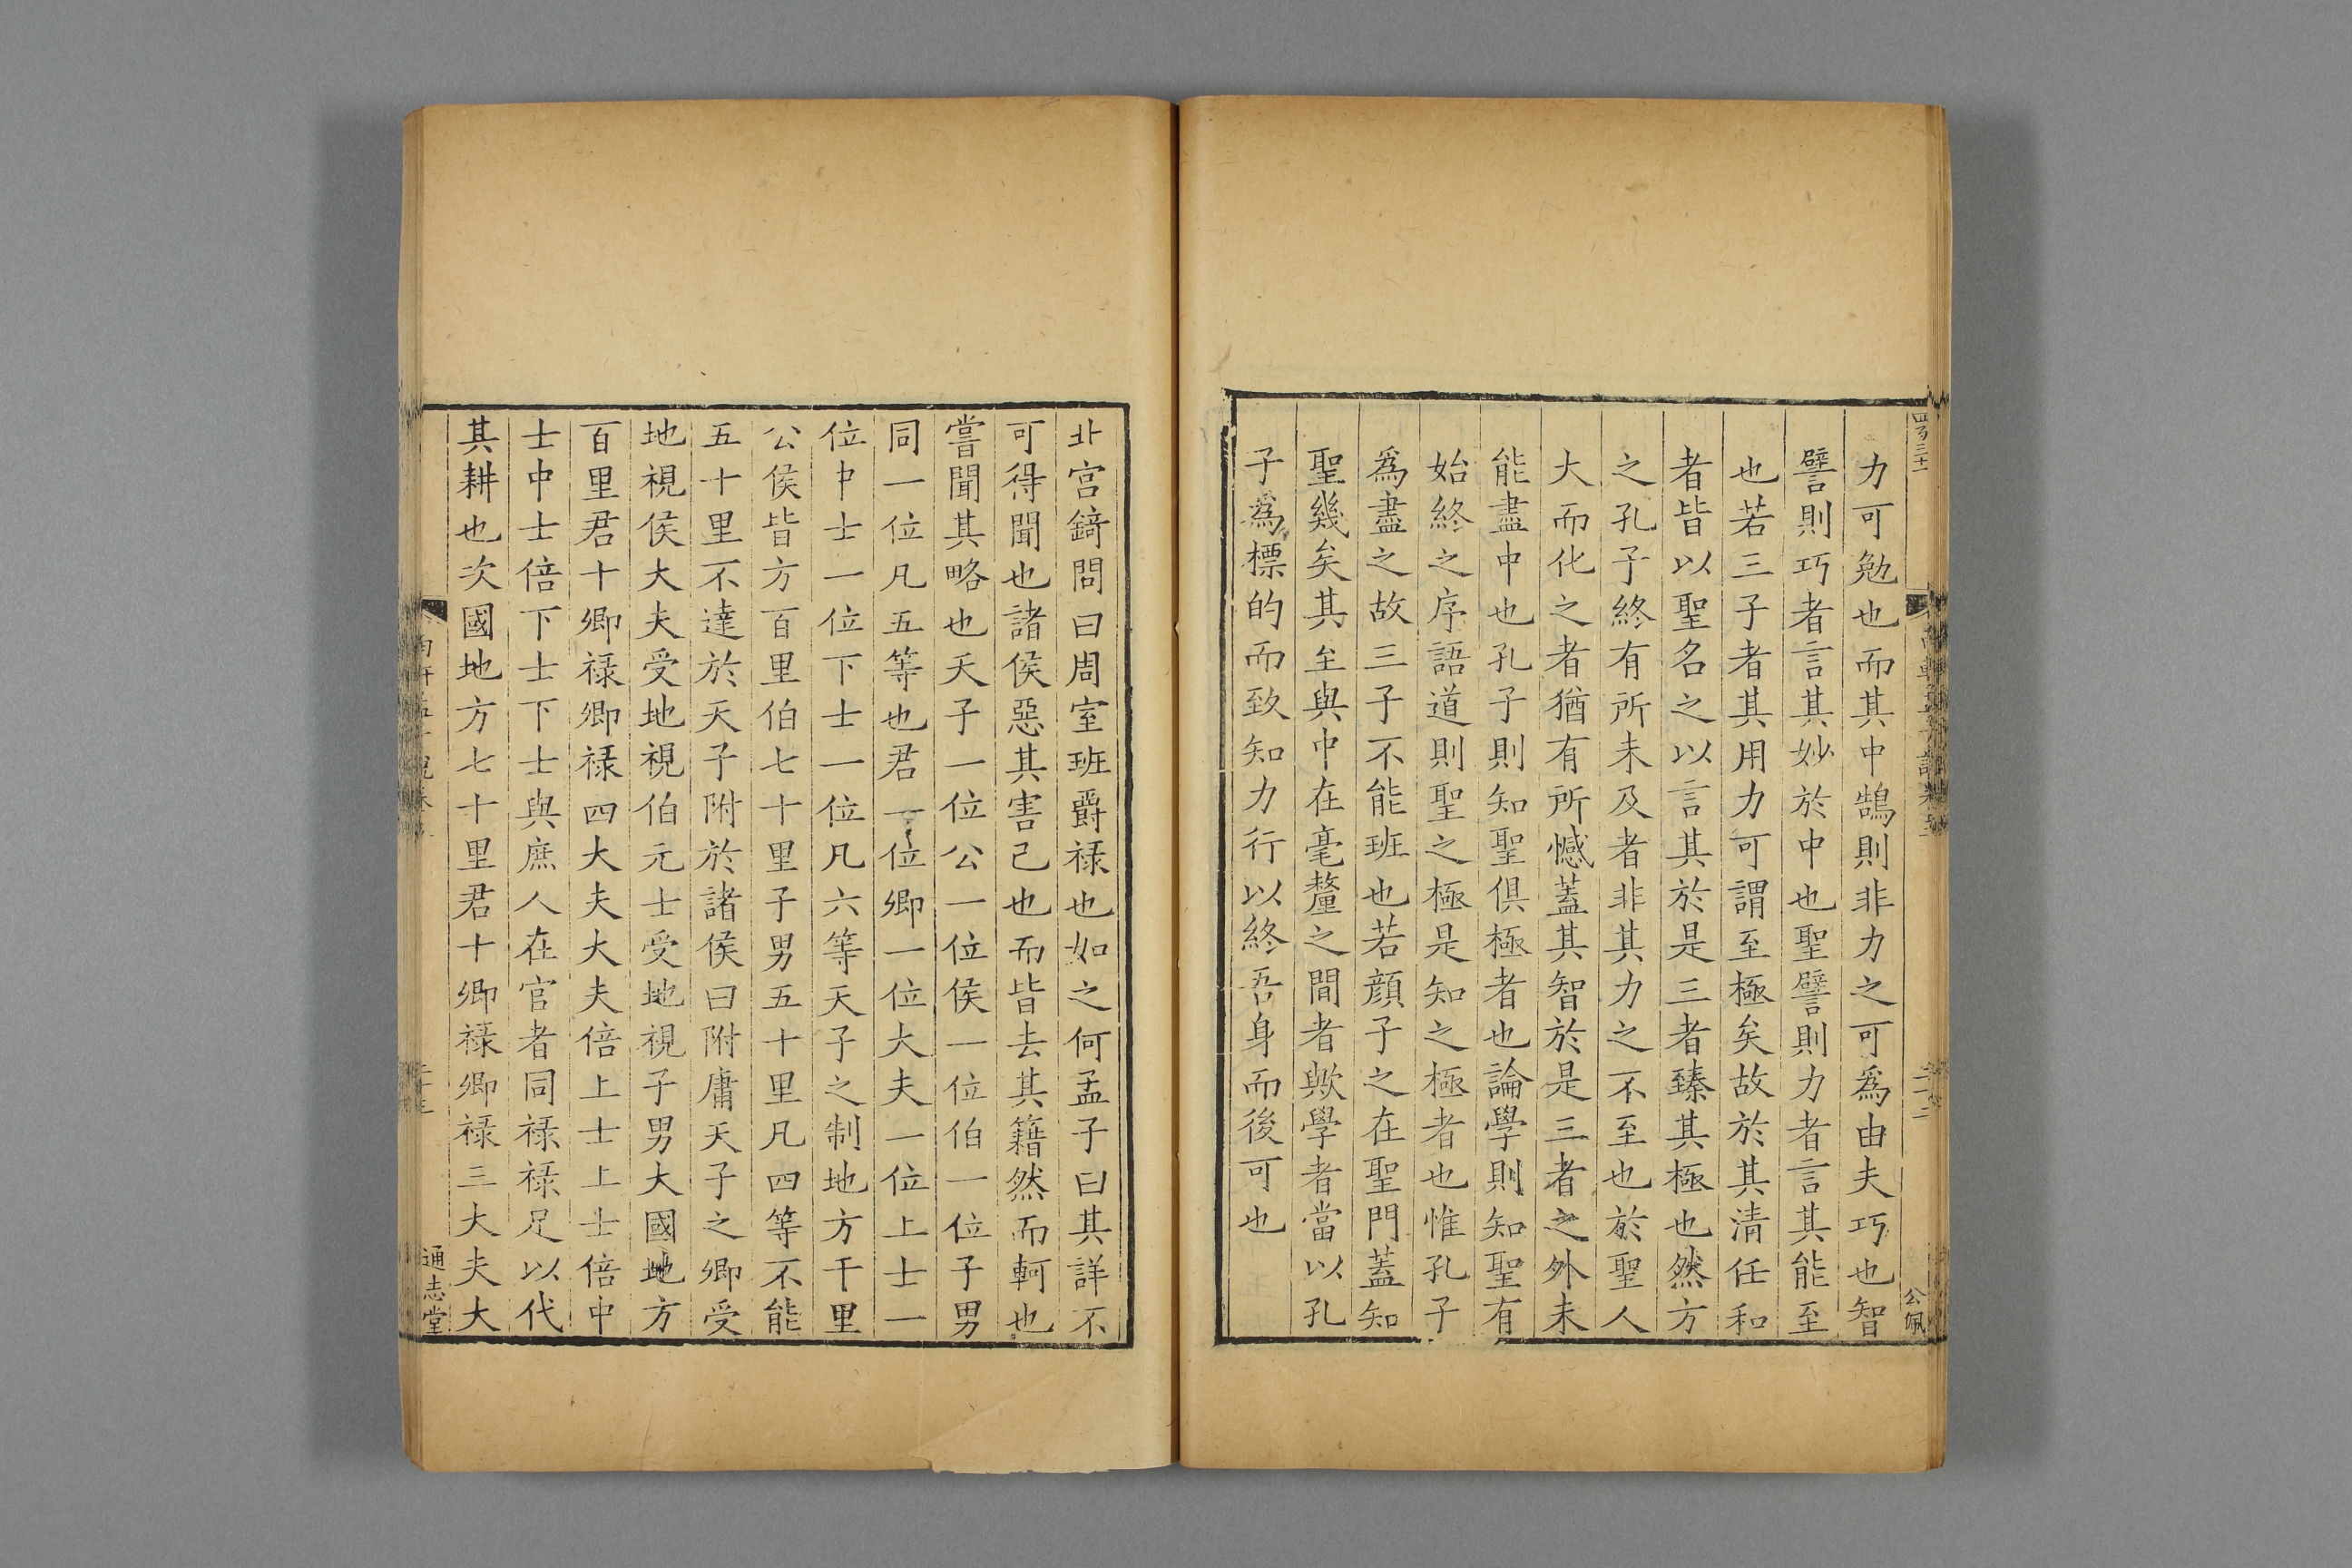 力可勉也而其中鵠則非力之可爲由夫巧也智
譬則巧者言其妙於中也聖譬則力者言其能至
也若三子者其用力可謂至極矣故於其清任和
者皆以聖名之以言其於是三者臻其極也然方
之孔子終有所未及者非其力之不至也於聖人
大而化之者猶有所憾蓋其智於是三者之外未
能盡中也孔子則知聖俱極者也論學則知聖有
始終之序語道則聖之極是知之極者也惟孔子
爲盡之故三子不能班也若顔子之在聖門蓋知
聖幾矣其至與中在毫釐之間者歟學者當以孔
子爲標的而致知力行以終吾身而後可也
公佩
北宮錡問曰周室班爵祿也如之何孟子曰其詳不
可得聞也諸侯惡其害己也而皆去其籍然而軻也
嘗聞其略也天子一位公一位侯一位伯一位子男
同一位凡五等也君一位卿一位大夫一位上士一
位中士一位下士一位凡六等天子之制地方千里
公侯皆方百里伯七十里子男五十里凡四等不能
五十里不達於天子附於諸侯曰附庸天子之卿受
地視侯大夫受地視伯元士受地視子男大國地方
百里君十卿祿卿祿四大夫大夫倍上士上士倍中
士中士倍下士下士與庶人在官者同祿祿足以代
其耕也次國地方七十里君十卿祿卿祿三大夫大
通志堂